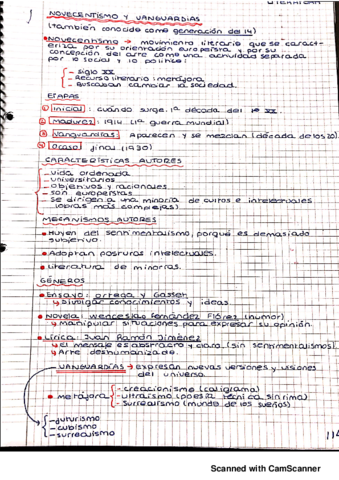 NOVECENTISMO Y VANGUARDIAS
(también conocido como generación del 14)
• Novecentismo → movimiento literario que se caract-
eriza por su orientación europeísta y por su
concepción del arte como una actividad separada
por lo social y lo político:
- siglo XX
- Recurso literario: metáfora.
- Buscaban cambiar la sociedad.
ETAPAS
① Inicial: cuándo surge. 1ª década del XX.
② Madurez: 1914 (1ª guerra mundial)
③ Vanguardias: Aparecen y se mezclan (década de los 20)
④ Ocaso: final (1930)
CARACTERÍSTICAS AUTORES
- vida ordenada
- universitarios
- objetivos y racionales
- son europeístas
- se dirigen a una minoría de cultos e intelectuales
(obras más complejas)
MECANISMOS AUTORES
• Huyen del sentimentalismo, porque es demasiado
subjetivo.
• Adoptan posturas intelectuales.
• Literatura de minorías.
GÉNEROS
• Ensayo: Ortega y Gasset
↳ Divulgar conocimientos y ideas
• Novela: Wenceslao Fernández Flórez (humor)
↳ Manipular situaciones para expresar su opinión.
• Lírica: Juan Ramón Jiménez
↳ El mensaje es abstracto y claro (sin sentimentalismos)
↳ Arte deshumanizado.
VANGUARDIAS → expresan nuevas versiones y visiones
del universo
• metáfora
- creacionismo (caligrama)
- ultraísmo (poesía técnica sin rima)
- Surrealismo (mundo de los sueños)
- futurismo
- cubismo
- surrealismo
Scanned with CamScanner